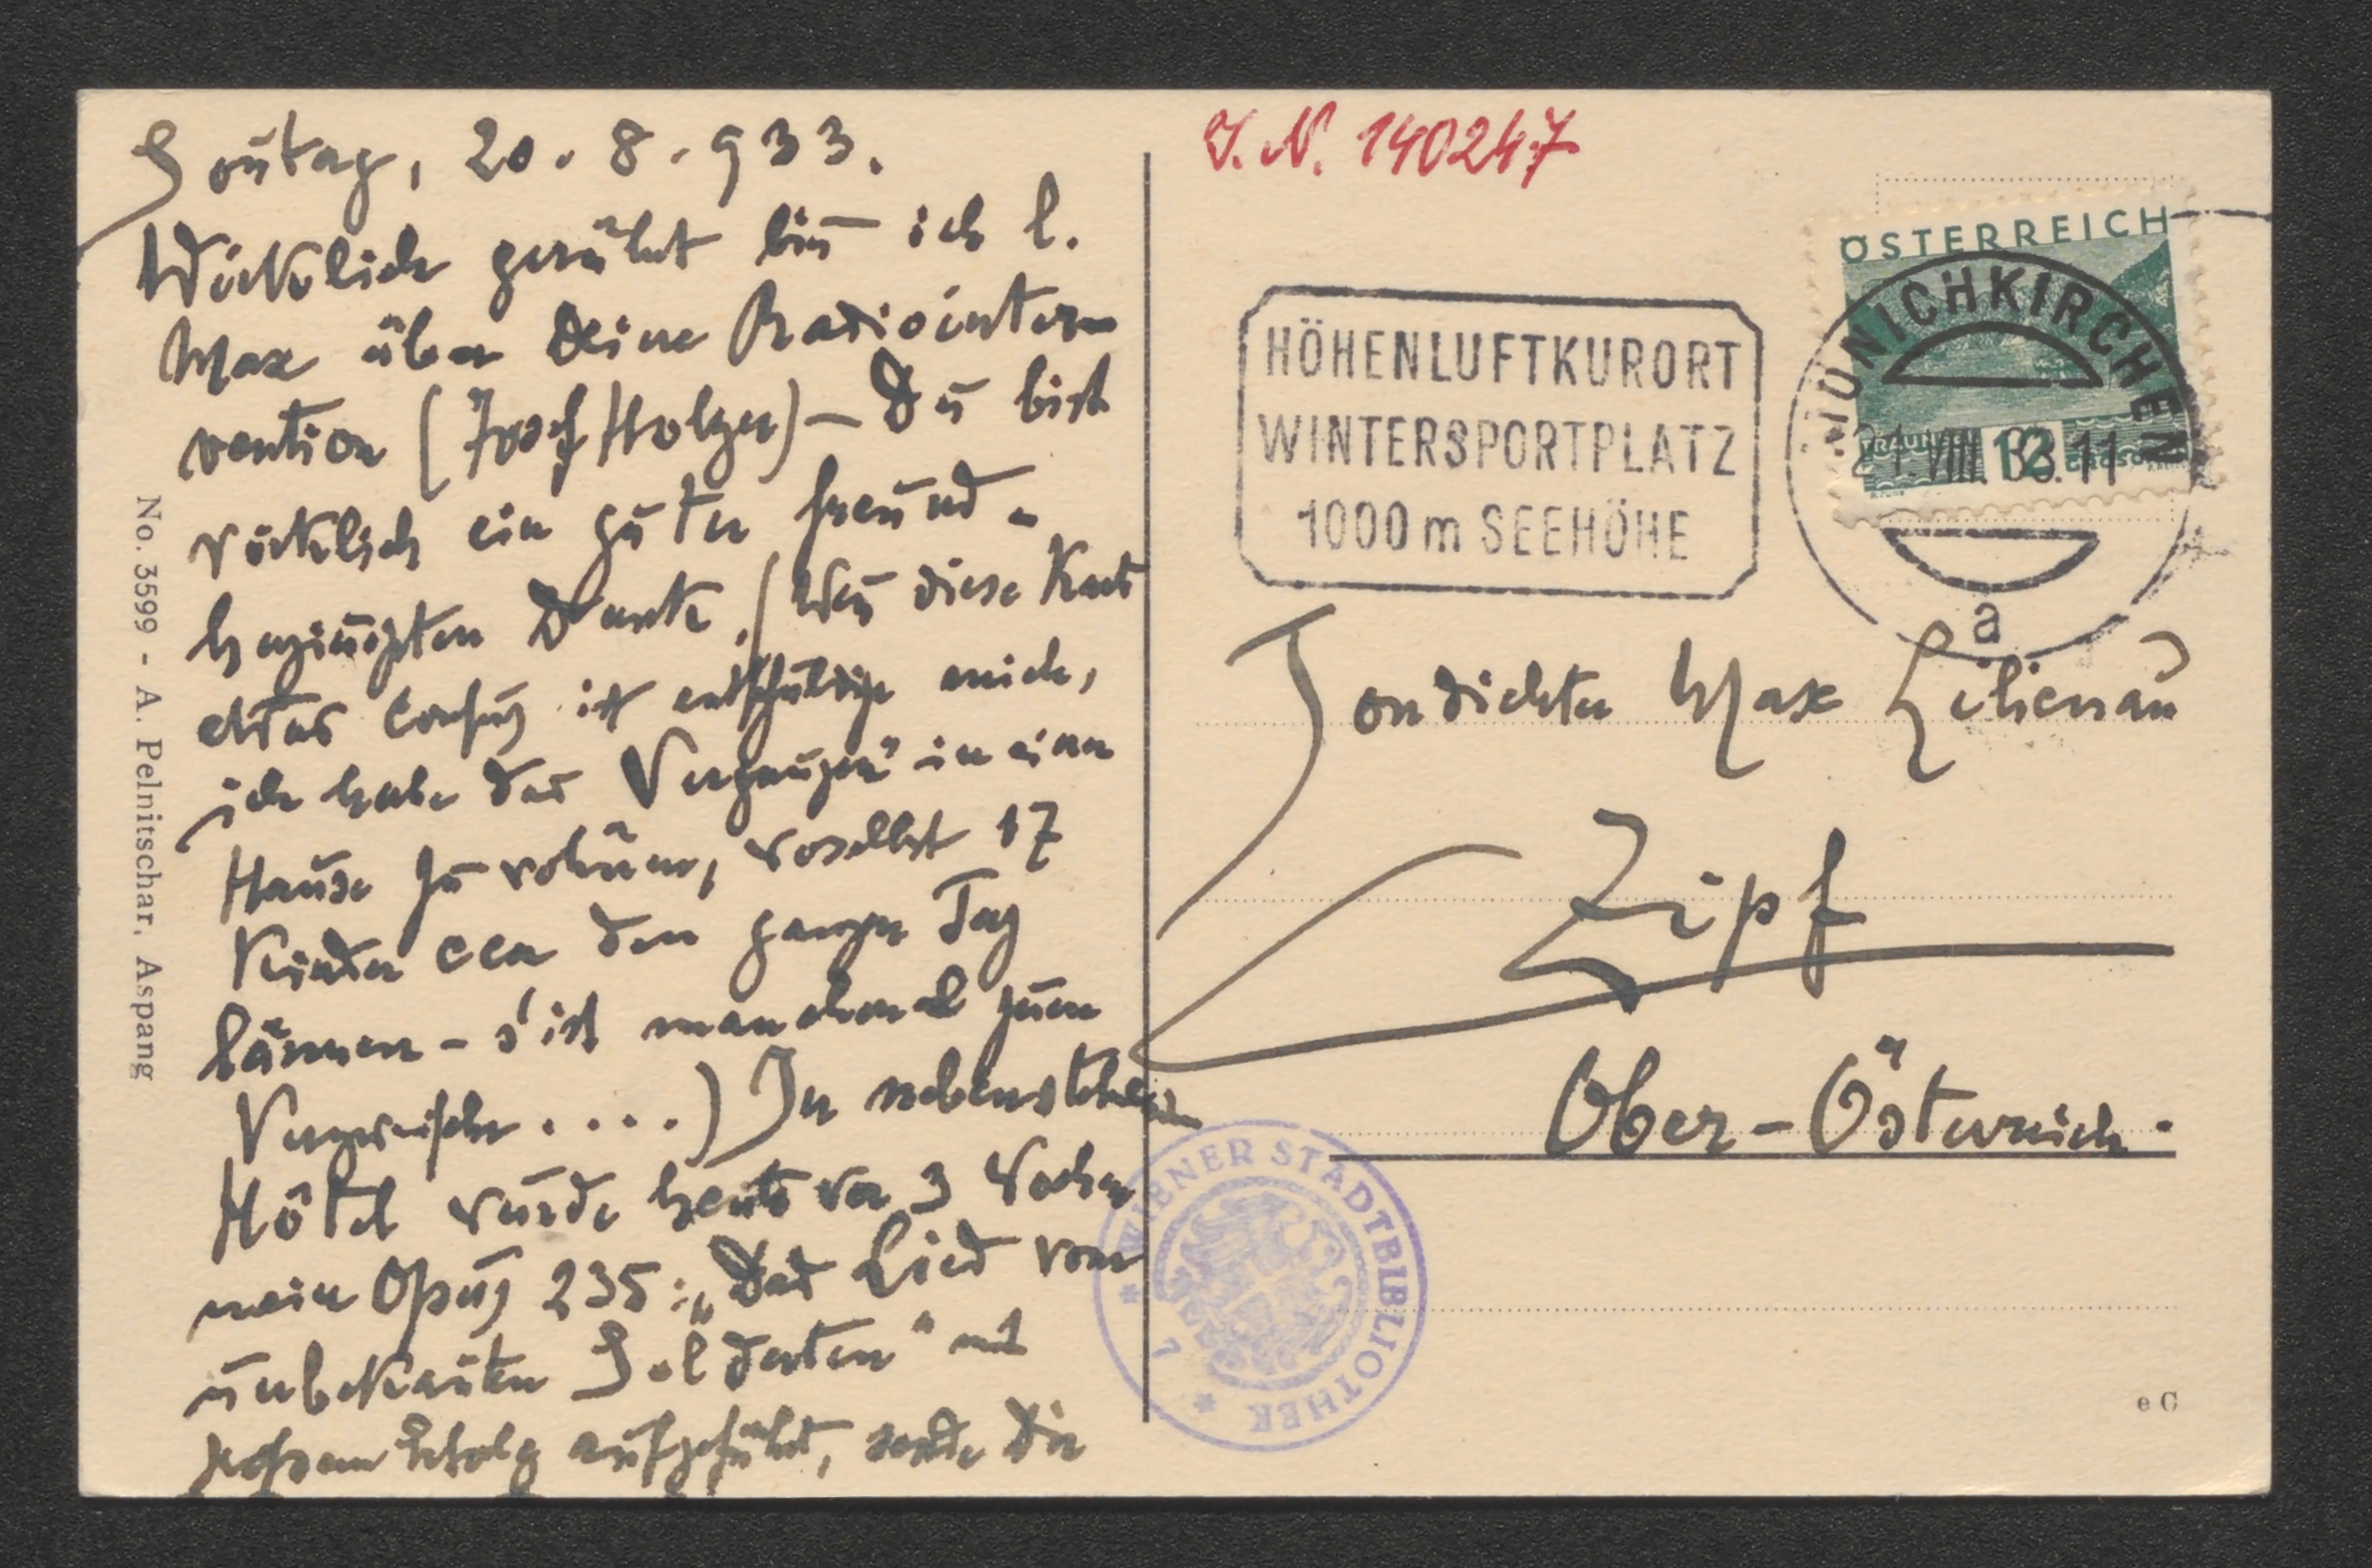 Soñtag, 20. 8. 933.
Wirklich gerührt biñ ich l.
Max über Deine Radiointer-
vention (Josef Holzer) – Du bist
wirklich ein guter Freund –
herzinigsten Dank. (Weñ diese Karte
etwas confus ist entschuldige mich,
ich habe das „Vergnügen" in einem
Hause zu wohnen, woselbst 17
Kinder cca den ganzen Tag
lärmen – s'ist manchmal zum
Verzweifeln ....) Im nebenstehenden
Hôtel wurde heute vor 3 Wochen
mein Opus 235: „Das Lied vom
unbekañten Soldaten" mit
großem Erfolg aufgeführt, sende Dir
No. 3599 - A. Pelnitschar, Aspang
J. N. 140247
ÖSTERREICH
12 GROSCHEN
HÖHENLUFTKURORT
WINTERSPORTPLATZ
1000 m SEEHÖHE
MÖNICHKIRCHEN
21. VIII. 33. 11
a
Tondichter Max Lilienau
Zipf
Ober-Österreich.
* WIENER STADTBIBLIOTHEK *
7
e C